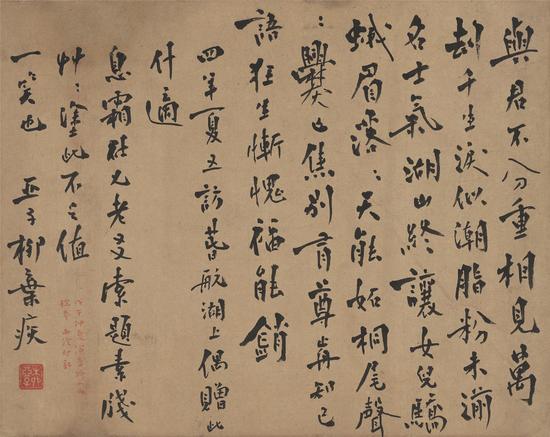 與君不分重相見萬
刧千生淚似潮脂粉未湔
名士氣湖山終讓女兒驕
蛾眉落：天能妬桐尾聲
：爨已焦別有尊前知己
語狂生慚愧福能銷
四年夏五訪萅航湖上偶贈此
什適
息霜社兄老友索題素牋
艸：塗此不足值
一笑也 亞子柳棄疾